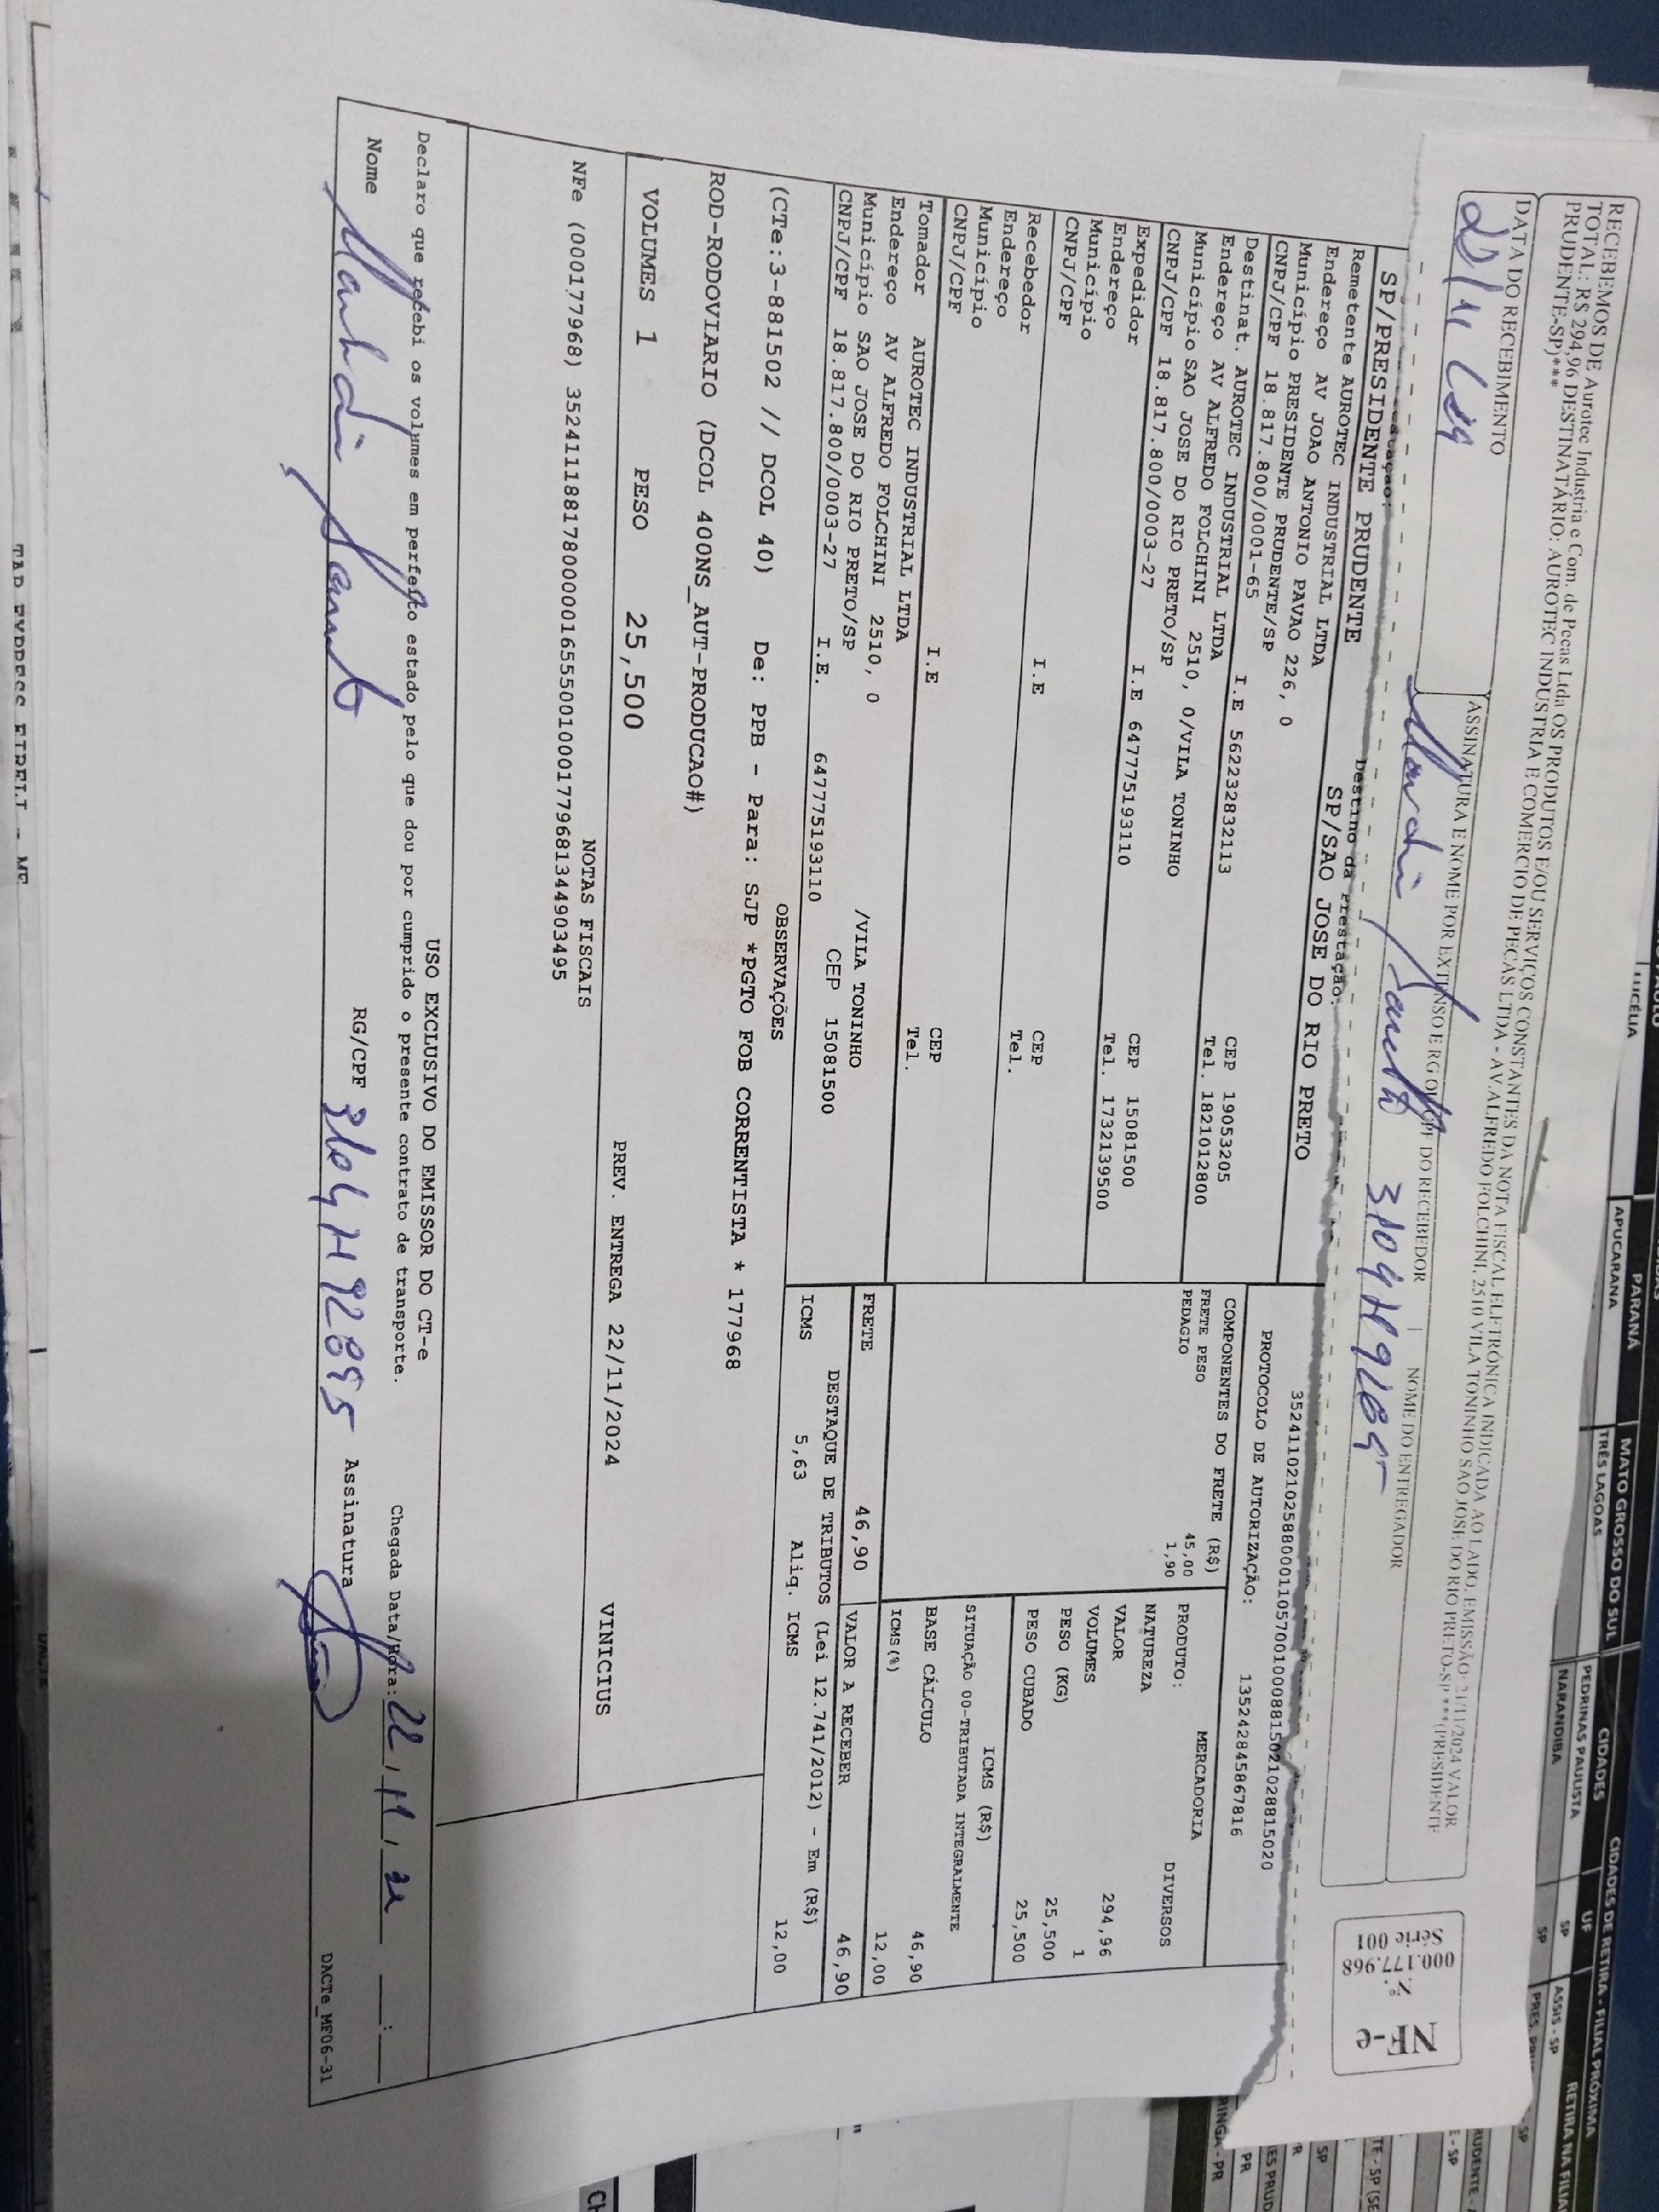 RECEBEMOS DE Aurotec Industria e Com. de Pecas Ltda OS PRODUTOS E/OU SERVIÇOS CONSTANTES DA NOTA FISCAL ELETRÔNICA INDICADA AO LADO. EMISSÃO: 21/11/2024 VALOR
TOTAL: R$ 294,96 DESTINATÁRIO: AUROTEC INDUSTRIA E COMERCIO DE PECAS LTDA - AV.ALFREDO FOLCHINI, 2510 VILA TONINHO SAO JOSE DO RIO PRETO-SP***(PRESIDENTE
PRUDENTE-SP)***
DATA DO RECEBIMENTO
ASSINATURA E NOME POR EXTENSO E RG OU CPF DO RECEBEDOR
NOME DO ENTREGADOR
NF-e
000.177.968
Série 001
Destino da Prestação:
SP/PRESIDENTE PRUDENTE SP/SAO JOSE DO RIO PRETO
Remetente AUROTEC INDUSTRIAL LTDA
Endereço AV JOAO ANTONIO PAVAO 226, 0
Município PRESIDENTE PRUDENTE/SP CEP 19053205
CNPJ/CPF 18.817.800/0001-65 I.E 562232832113 Tel. 1821012800
Destinat. AUROTEC INDUSTRIAL LTDA
Endereço AV ALFREDO FOLCHINI 2510, 0/VILA TONINHO
Município SAO JOSE DO RIO PRETO/SP CEP 15081500
CNPJ/CPF 18.817.800/0003-27 I.E 647775193110 Tel. 1732139500
Expedidor
Endereço
Município CEP
CNPJ/CPF I.E Tel.
Recebedor
Endereço
Município CEP
CNPJ/CPF I.E Tel.
Tomador AUROTEC INDUSTRIAL LTDA
Endereço AV ALFREDO FOLCHINI 2510, 0 /VILA TONINHO
Município SAO JOSE DO RIO PRETO/SP CEP 15081500
CNPJ/CPF 18.817.800/0003-27 I.E. 647775193110
PROTOCOLO DE AUTORIZAÇÃO: 135242845867816
COMPONENTES DO FRETE (R$)
FRETE PESO 45,00
PEDAGIO 1,90
PRODUTO: MERCADORIA
NATUREZA DIVERSOS
VALOR 294,96
VOLUMES 1
PESO (KG) 25,500
PESO CUBADO 25,500
ICMS (R$)
SITUAÇÃO 00-TRIBUTADA INTEGRALMENTE
BASE CÁLCULO 46,90
ICMS(%) 12,00
FRETE 46,90 VALOR A RECEBER 46,90
DESTAQUE DE TRIBUTOS (Lei 12.741/2012) - Em (R$)
ICMS 5,63 Aliq. ICMS 12,00
OBSERVAÇÕES
(CTe:3-881502 // DCOL 40) De: PPB - Para: SJP *PGTO FOB CORRENTISTA * 177968
ROD-RODOVIARIO (DCOL 400NS_AUT-PRODUCAO#)
VOLUMES 1 PESO 25,500 PREV. ENTREGA 22/11/2024 VINICIUS
NOTAS FISCAIS
NFe (000177968) 35241118817800000165550010001779681344903495
USO EXCLUSIVO DO EMISSOR DO CT-e
Declaro que recebi os volumes em perfeito estado pelo que dou por cumprido o presente contrato de transporte.
Chegada Data/Hora: 22/11/
Nome RG/CPF Assinatura
DACTe_MF06-31
LUCÉLIA
PARANÁ
APUCARANA
MATO GROSSO DO SUL
TRÊS LAGOAS
CIDADES
PEDRINAS PAULISTA
NARANDIBA
UF
SP
SP
CIDADES DE RETIRA - FILIAL PRÓXIMA
ASSIS - SP
RETIRA NA FILIA